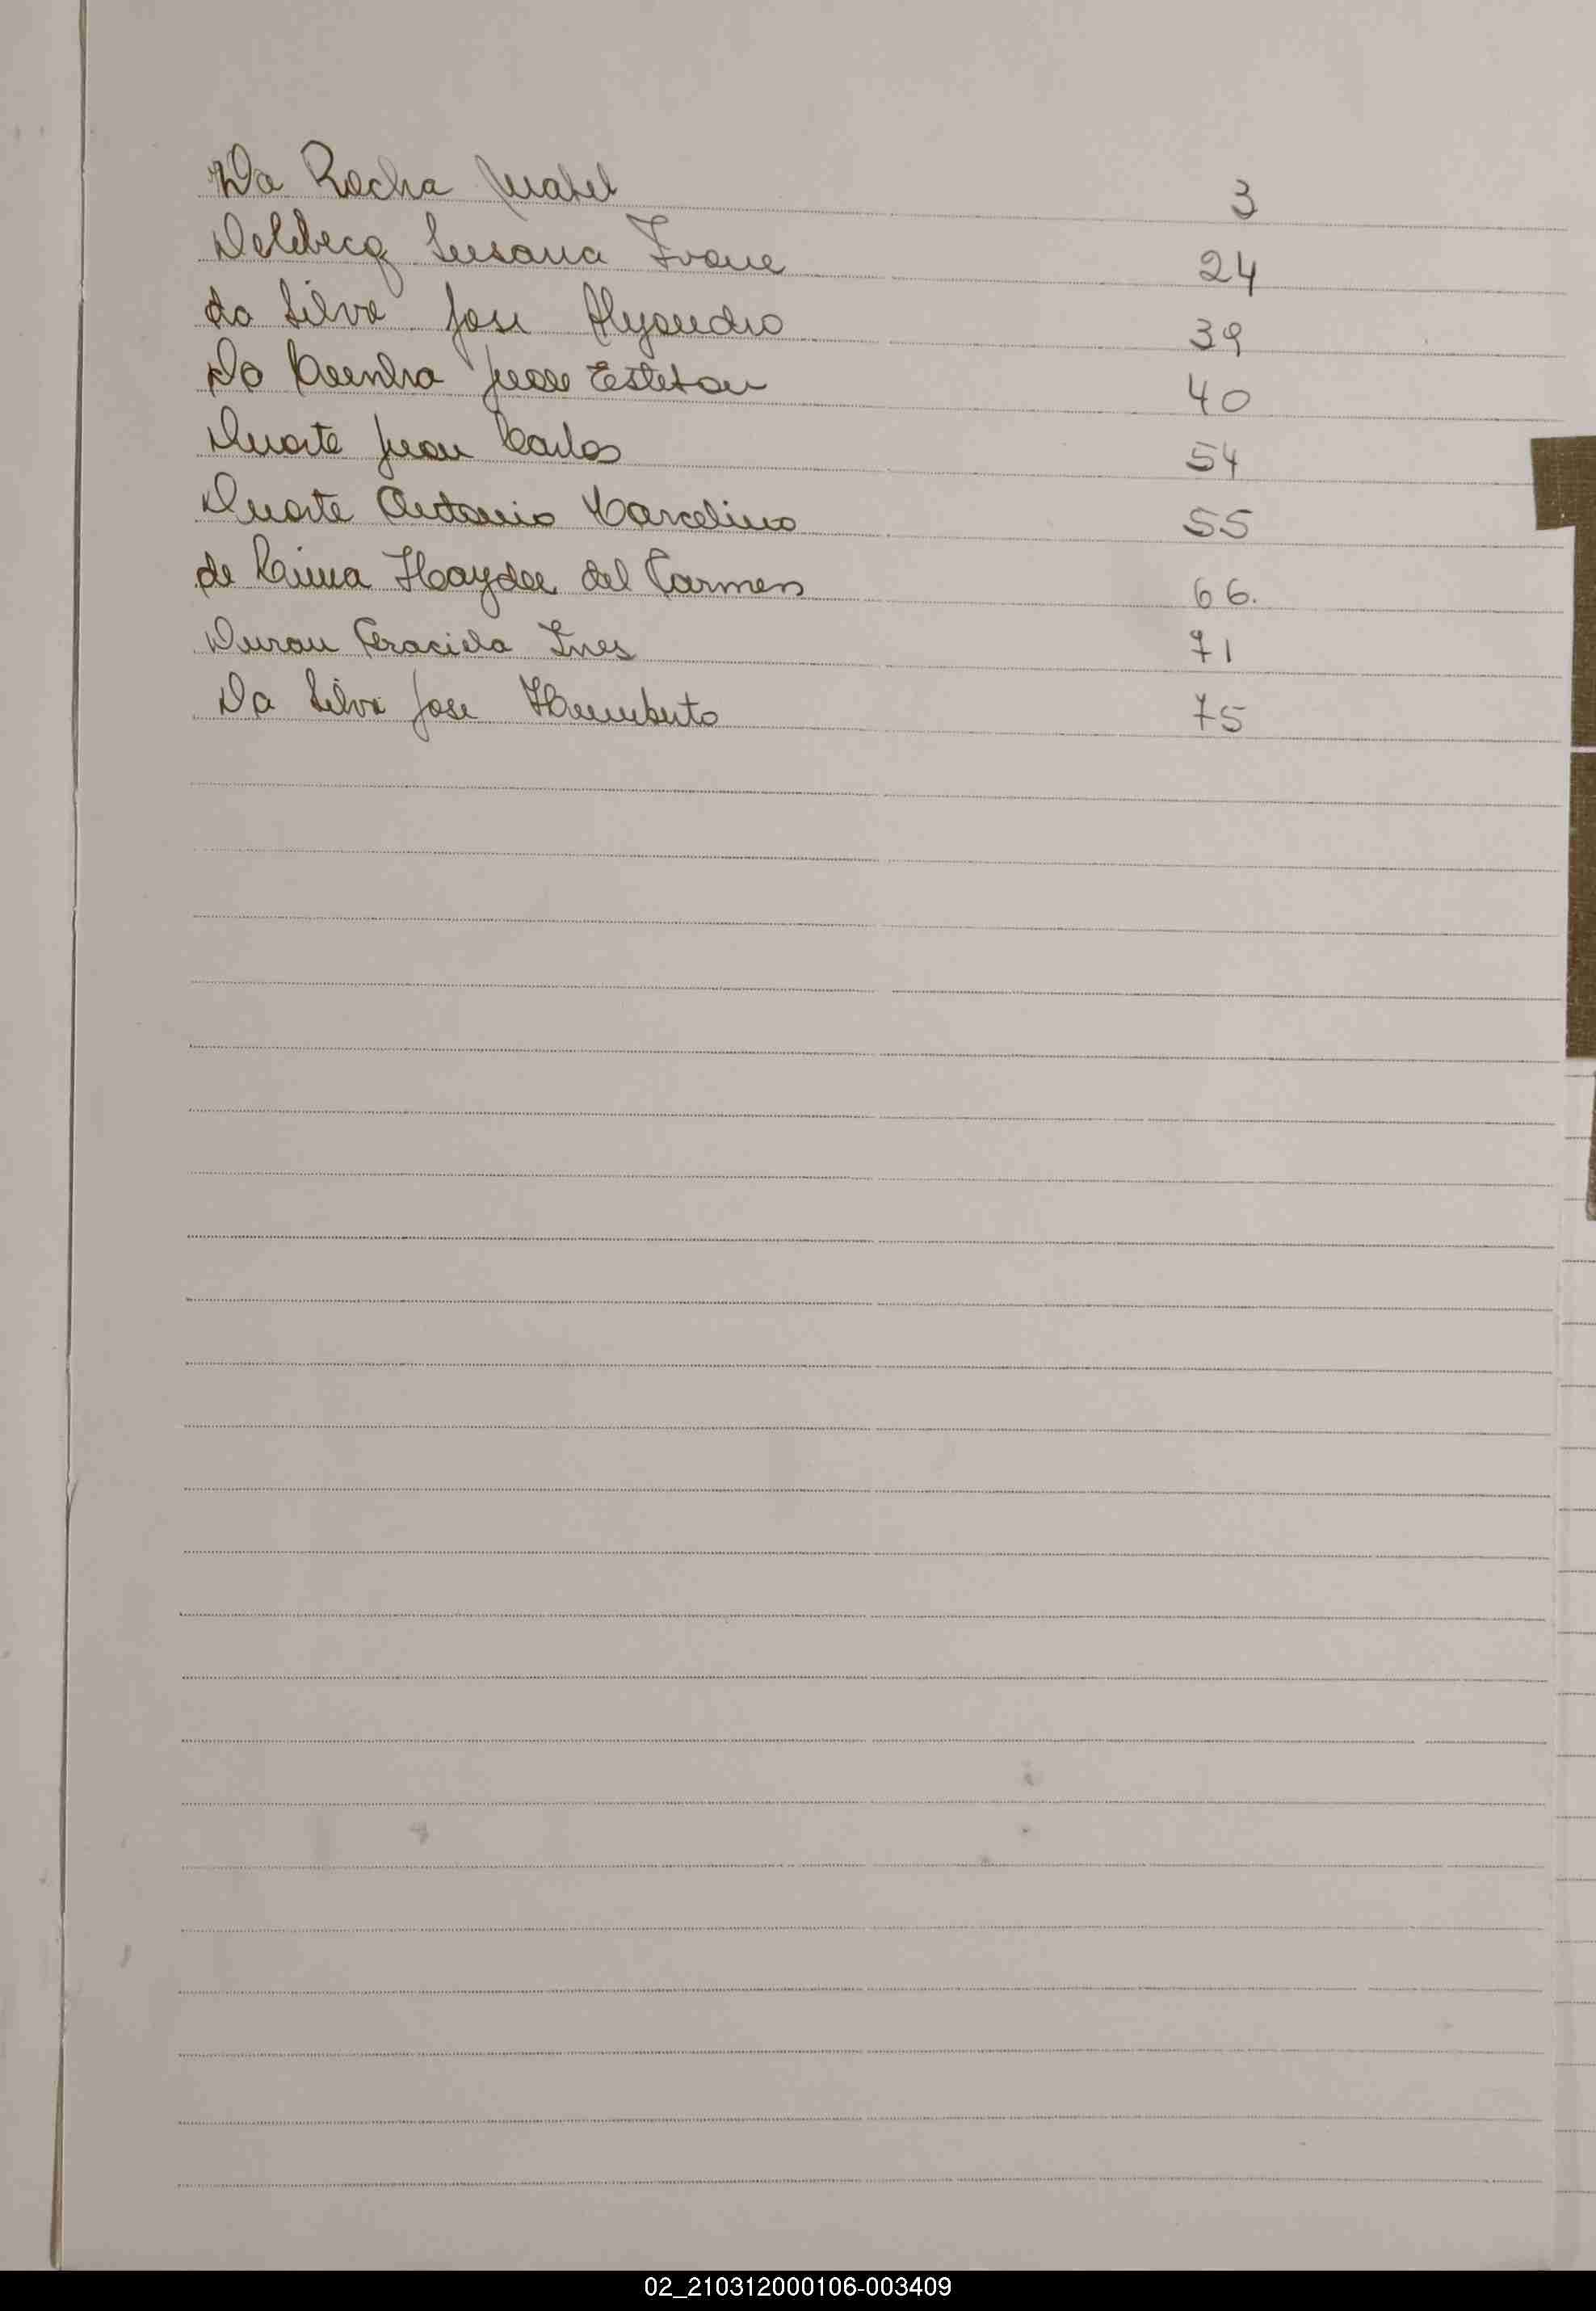 Da Rocha Mabel 3
Delebecq Susana Ivone 24
da Silva Jose Alejandro 39
Da Cunha Juan Esteban 40
Duarte Juan Carlos 54
Duarte Antonio Marcelino 55
de Haydee del Carmen 66.
Duran Graciela Ines 71
Da Silva Jose Humberto 75
02_210312000106-003409